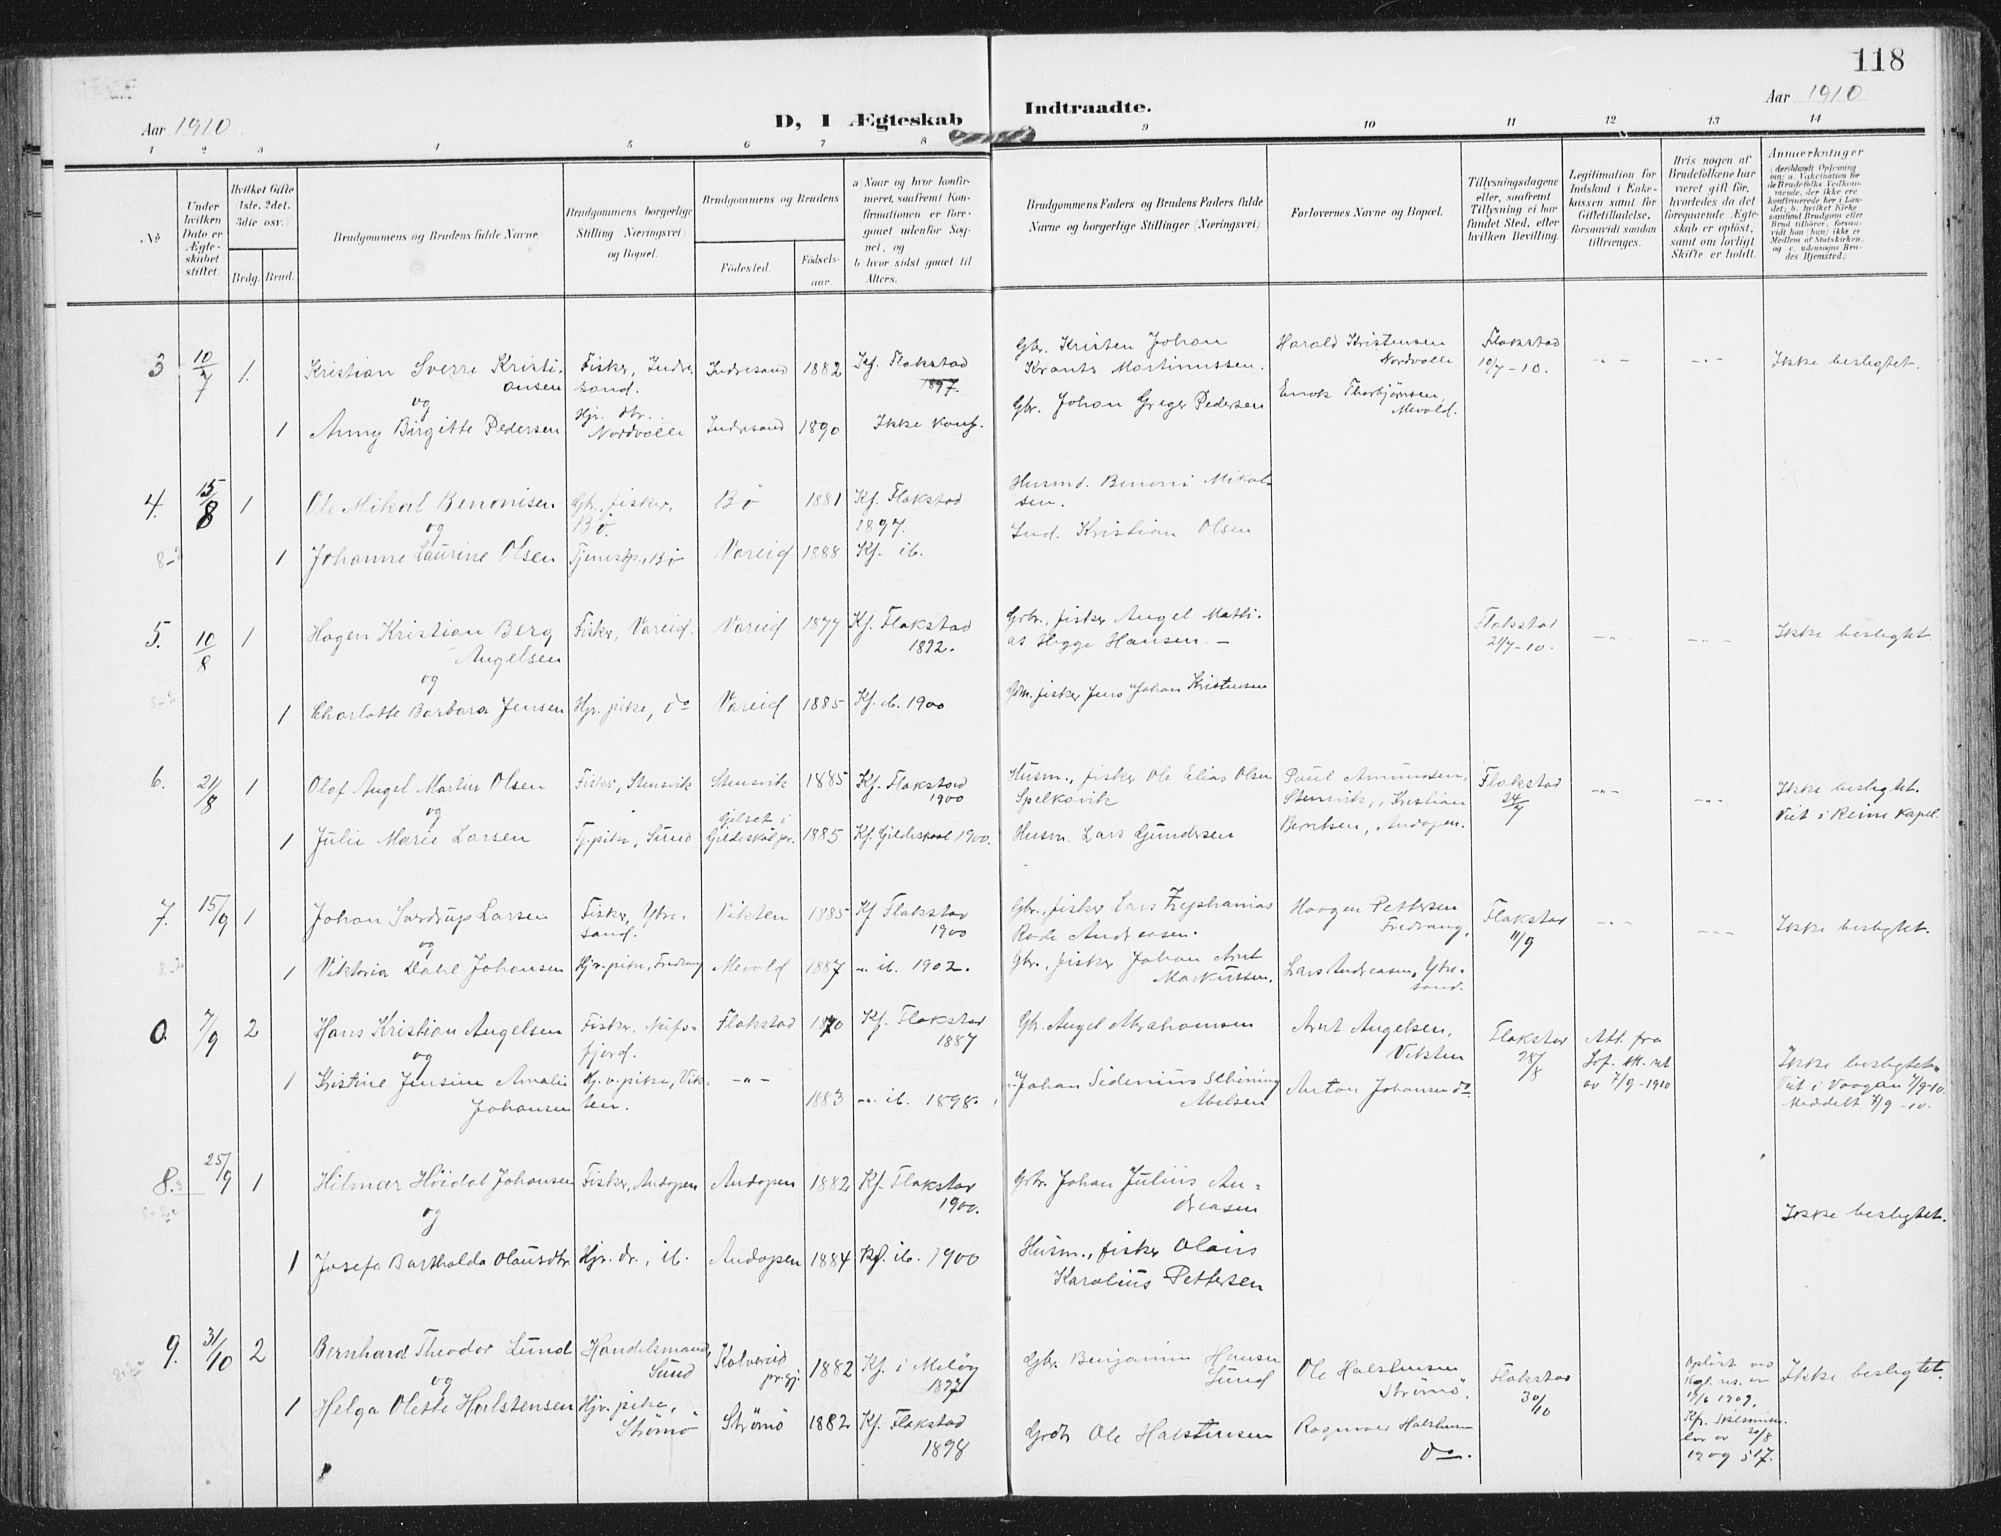 118
Aar 1910
D, I Ægteskab Indtraadte.
Aar 1910
1 2 3 4 5 6 7 8 9 10 11 12 13 14
No
Under hvilken Dato er Ægteskabet stiftet.
Hvilket Gifte (1ste, 2det, 3die osv.)
Brdg. Brud.
Brudgommens og Brudens fulde Navne
Brudgommens borgerlige Stilling (Næringsvei) og Bopæl.
Brudgommens og Brudens
Fødested. Fødselsaar.
a Naar og hvor konfirmeret, saafremt Konfirmationen er foregaaet udenfor Sognet, og
b hvor sidst gaaet til Alters.
Brudgommens Faders og Brudens Faders fulde Navne og borgerlige Stillinger (Næringsvei)
Forlovernes Navne og Bopæl.
Tillysningsdagene eller, saafremt Tillysning ei har fundet Sted, efter hvilken Bevilling.
Legitimation for Indskud i Enkekassen samt for Giftetilladelse, forsaavidt saadan tiltrænges.
Hvis nogen af Brudefolkene har været gift før, hvorledes da det foregaaende Ægteskab er opløst, samt om lovligt Skifte er holdt.
Anmærkninger
(deriblandt Oplysning om: a. Vakcination for de Brudefolks Vedkommende, der ikke ere konfirmerede her i Landet; b. hvilket Kirkesamfund Brudgom eller Brud tilhører, forsaavidt han (hun) ikke er Medlem af Statskirken, og c. udensogns Brudes Hjemsted.)
3 10/7 1. Kristian Sverre Kristiansen Fisker, Indresand. Indresand 1882 Kf. Flakstad 1897. Gbr. Kristen Johan Krants Martinussen. Harald Kristensen Nordvolle Flakstad 10/7-10. -"- -"- Ikke beslegtet.
og
1 Anny Birgitte Pedersen Hjv. dtr. Nordvolle Indresand 1890 Ikke konf. Gbr. Johan Greger Pedersen Enok Thorbjørnsen, Mevold.
4. 15/8 1 Ole Mikal Benonisen Gbr. fisker, Bø. Bø 1881 Kf. Flakstad 1897. Husmd. Benoni Mikalsen.
og
8-2 1 Johanne Laurine Olsen Tjenstp., Bø Vareid 1888 Kf. ib. Ind. Kristian Olsen
5. 10/8 1 Hagen Kristian Berg Angelsen Fisker, Vareid. Vareid 1877 Kf. Flakstad 1892. Grbr., fisker Angel Mathias Hegge Hansen. - Flakstad 21/7-10. -"- -"- Ikke beslegtet.
og
8-2 1 Charlotte Barbara Jensen Hjv. pike, do Vareid 1885 Kf. ib. 1900 Gdm. fisker Jens Johan Kristensen
6. 21/8 1 Olaf Angel Martin Olsen Fisker, Stensvik Stensvik 1885 Kf. Flakstad 1900 Husm., fisker Ole Elias Olsen Spelkavik Paul Amundsen, Stensvik, Kristian Berntsen, Andopen. Flakstad 24/7 -"- -"- Ikke beslegtet. Viet i Reine Kapel.
og
1 Julie Marie Larsen Tj. pike, Sund Gilset i Gildeskål pr. 1885 Kf. Gildeskaal 1900. Husm. Lars Gundersen
7. 15/9 1 Johan Sverdrup Larsen Fisker, Ytresand. Vikten 1885 Kf Flakstad 1900 Gbr., fisker Lars Zephanias Rode Andreasen. Haagen Pettersen Fredvang, Flakstad 11/9 -"- -"- Ikke beslegtet.
og
8-2 1 Viktoria Dahl Johansen Hjv. pike, Fredvang Mevold 1887 -"- ib. 1902. Gbr., fisker Johan Arnt Markussen. Lars Andreasen, Ytresand.
0. 7/9 2 Hans Kristian Angelsen Fisker, Nufsfjord. Flakstad 1870 Kf. Flakstad 1887 Gbr. Angel Abrahamsen Arnt Angelsen, Vikten Flakstad 28/8 Att. fra Lof. skr. av 7/9-1910 Ikke beslegtet. Viet i Vaagan 7/9-10. Meddelt 7/9-10.
og
1 Kristine Jensine Amalie Johansen Hj. v. pike, Vikten. -"- 1883 -"- ib. 1898. Johan Sidenius Schøning Abelsen Anton Johansen do
8. 25/9 1 Hilmar Høidal Johansen Fisker, Andopen Andopen 1882 Kf. Flakstad 1900. Grbr. Johan Julius Andreasen Ikke beslegtet.
og
1 Josefa Bartholda Olausdtr. Hjv. dr., ib. Andopen 1884 Kf. ib. 1900 Husm., fisker Olaus Karolius Pettersen
9. 31/10 2 Bernhard Theodor Lund Handelsmand, Sund Kolvereid pr.gj. 1882 Kf. i Meløy 1897 Gbr. Benjamin Hansen Lund Ole Halstensen Strømø. Flakstad 30/10 Opløst ved Kgl. res. av 19/6 1909, Kfr. Skilsmisse av 20/8 1909 517. Ikke beslegtet.
og
1 Helga Olette Halstensen Hjv. pike, Strømø Strømø 1882 Kf. Flakstad 1898 Grdbr Ole Halstensen Ragnvald Halstensen do.